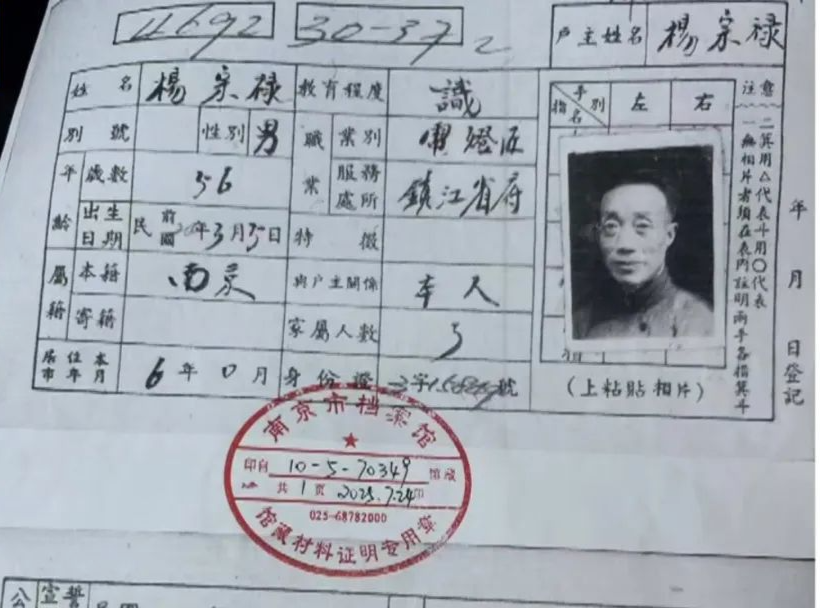 4692 30-37 2
戶主姓名 楊宗禄
姓名 楊宗禄 教育程度 識
別號 性別 男 職業 業別 燈匠
年齡 歲數 56 服務處所 鎮江省府
出生日期 民前國 年3月 日 特徵
屬籍 本籍 南京 與戶主關係 本人
寄籍 家屬人數 5
居住本市年月 6年0月 身份證 字 號
手別 指名 左 右
(上粘貼相片)
注意
一無相片者須在表內註明兩手各指箕斗
二箕用△代表斗用○代表
年 月 日登記
南京市档案馆
印自 10-5-70349 馆藏
共 1 页 2025.7.24
025-68782000
馆藏材料证明专用章
公 宣誓